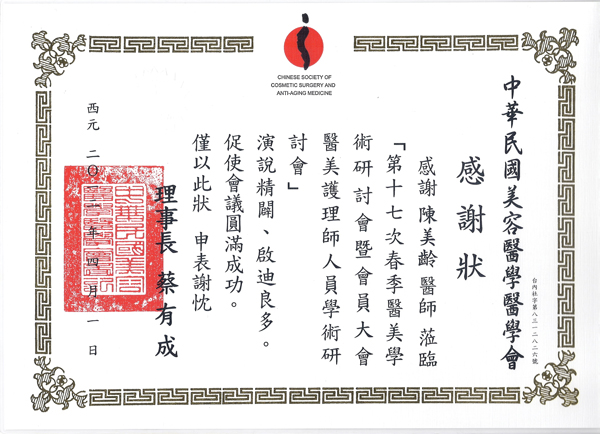 CHINESE SOCIETY OF
COSMETIC SURGERY AND
ANTI-AGING MEDICINE
中華民國美容醫學醫學會
台內社字第八三一二八二六號
感謝狀
感謝陳美齡醫師 蒞臨
「第十七次春季醫美學
術研討會暨會員大會
醫美護理師人員學術研
討會」
演說精闢、啟迪良多。
促使會議圓滿成功。
僅以此狀 申表謝忱
理事長 蔡有成
西元 二○ 年 四 月 一 日